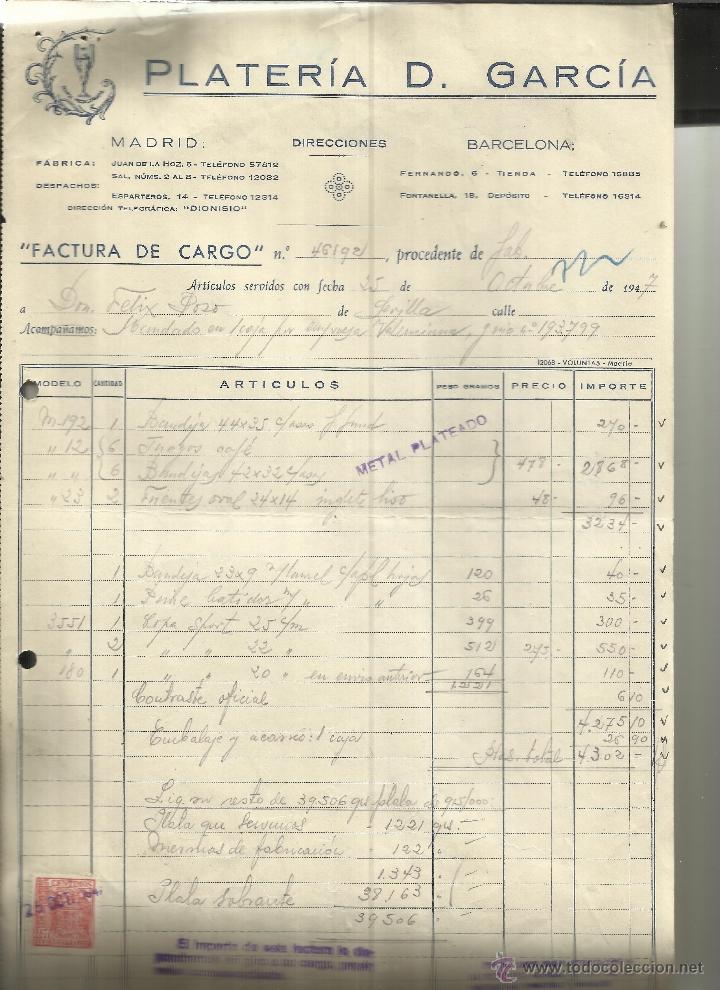 PLATERÍA D. GARCÍA
MADRID: DIRECCIONES BARCELONA:
FÁBRICA: JUAN DE LA HOZ, 5 - TELÉFONO 57812
SAL, NÚMS. 2 AL 8 - TELÉFONO 12032
DESPACHOS:
ESPARTEROS, 14 - TELÉFONO 12314
DIRECCIÓN TELEGRÁFICA: "DIONISIO"
FERNANDO, 6 - TIENDA - TELÉFONO 16885
FONTANELLA, 18, DEPÓSITO - TELÉFONO 16314
"FACTURA DE CARGO" n.º 46192, procedente de fab.
Artículos servidos con fecha 25 de Octubre de 1947
a Don Felix Pozo de Sevilla calle
Acompañamos: en 1 caja por Valenciana, guia nº 193799
12068 - VOLUNTAS - Madrid
MODELO CANTIDAD ARTICULOS PESO GRAMOS PRECIO IMPORTE
M.192 1 Bandeja 44x35 c/asas 270-
" 12 6 Juegos café
METAL PLATEADO
" " 6 Bandejas 42x32 c/asas 478- 2868-
" 23 2 Fuentes oval 24x14 inglete liso 48- 96-
3234-
1 Bandeja 23x9 laurel c/apl. hojas 120 40-
1 " " 26 35-
3551 1 Copa Sport 25 c/m 399 300-
" 2 " " 22 " 512 275- 550-
180 1 " " 20 " en envio anterior 164 110-
1221
Contraste oficial 6 10
4.275 10
Embalaje y acarreo: 1 caja 26 90
Ptas. total 4302-
resto de 39.506 grs plata de 915/000:
Plata que servimos - 1221 grs.-
Mermas de fabricación - 122 "
1.343
Plata sobrante 38.163
39.506
25 OCT. 194
El importe de esta factura lo
www.todocoleccion.net